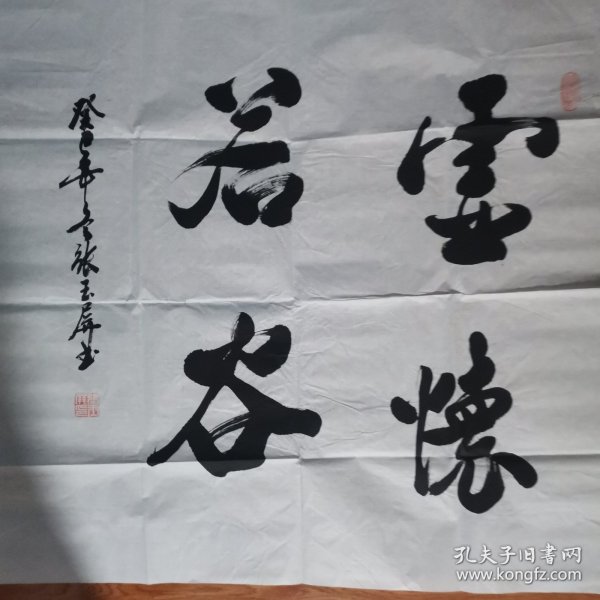 虚懷
若谷
癸巳年冬张玉屏书
孔夫子旧書网
www.kongfz.com